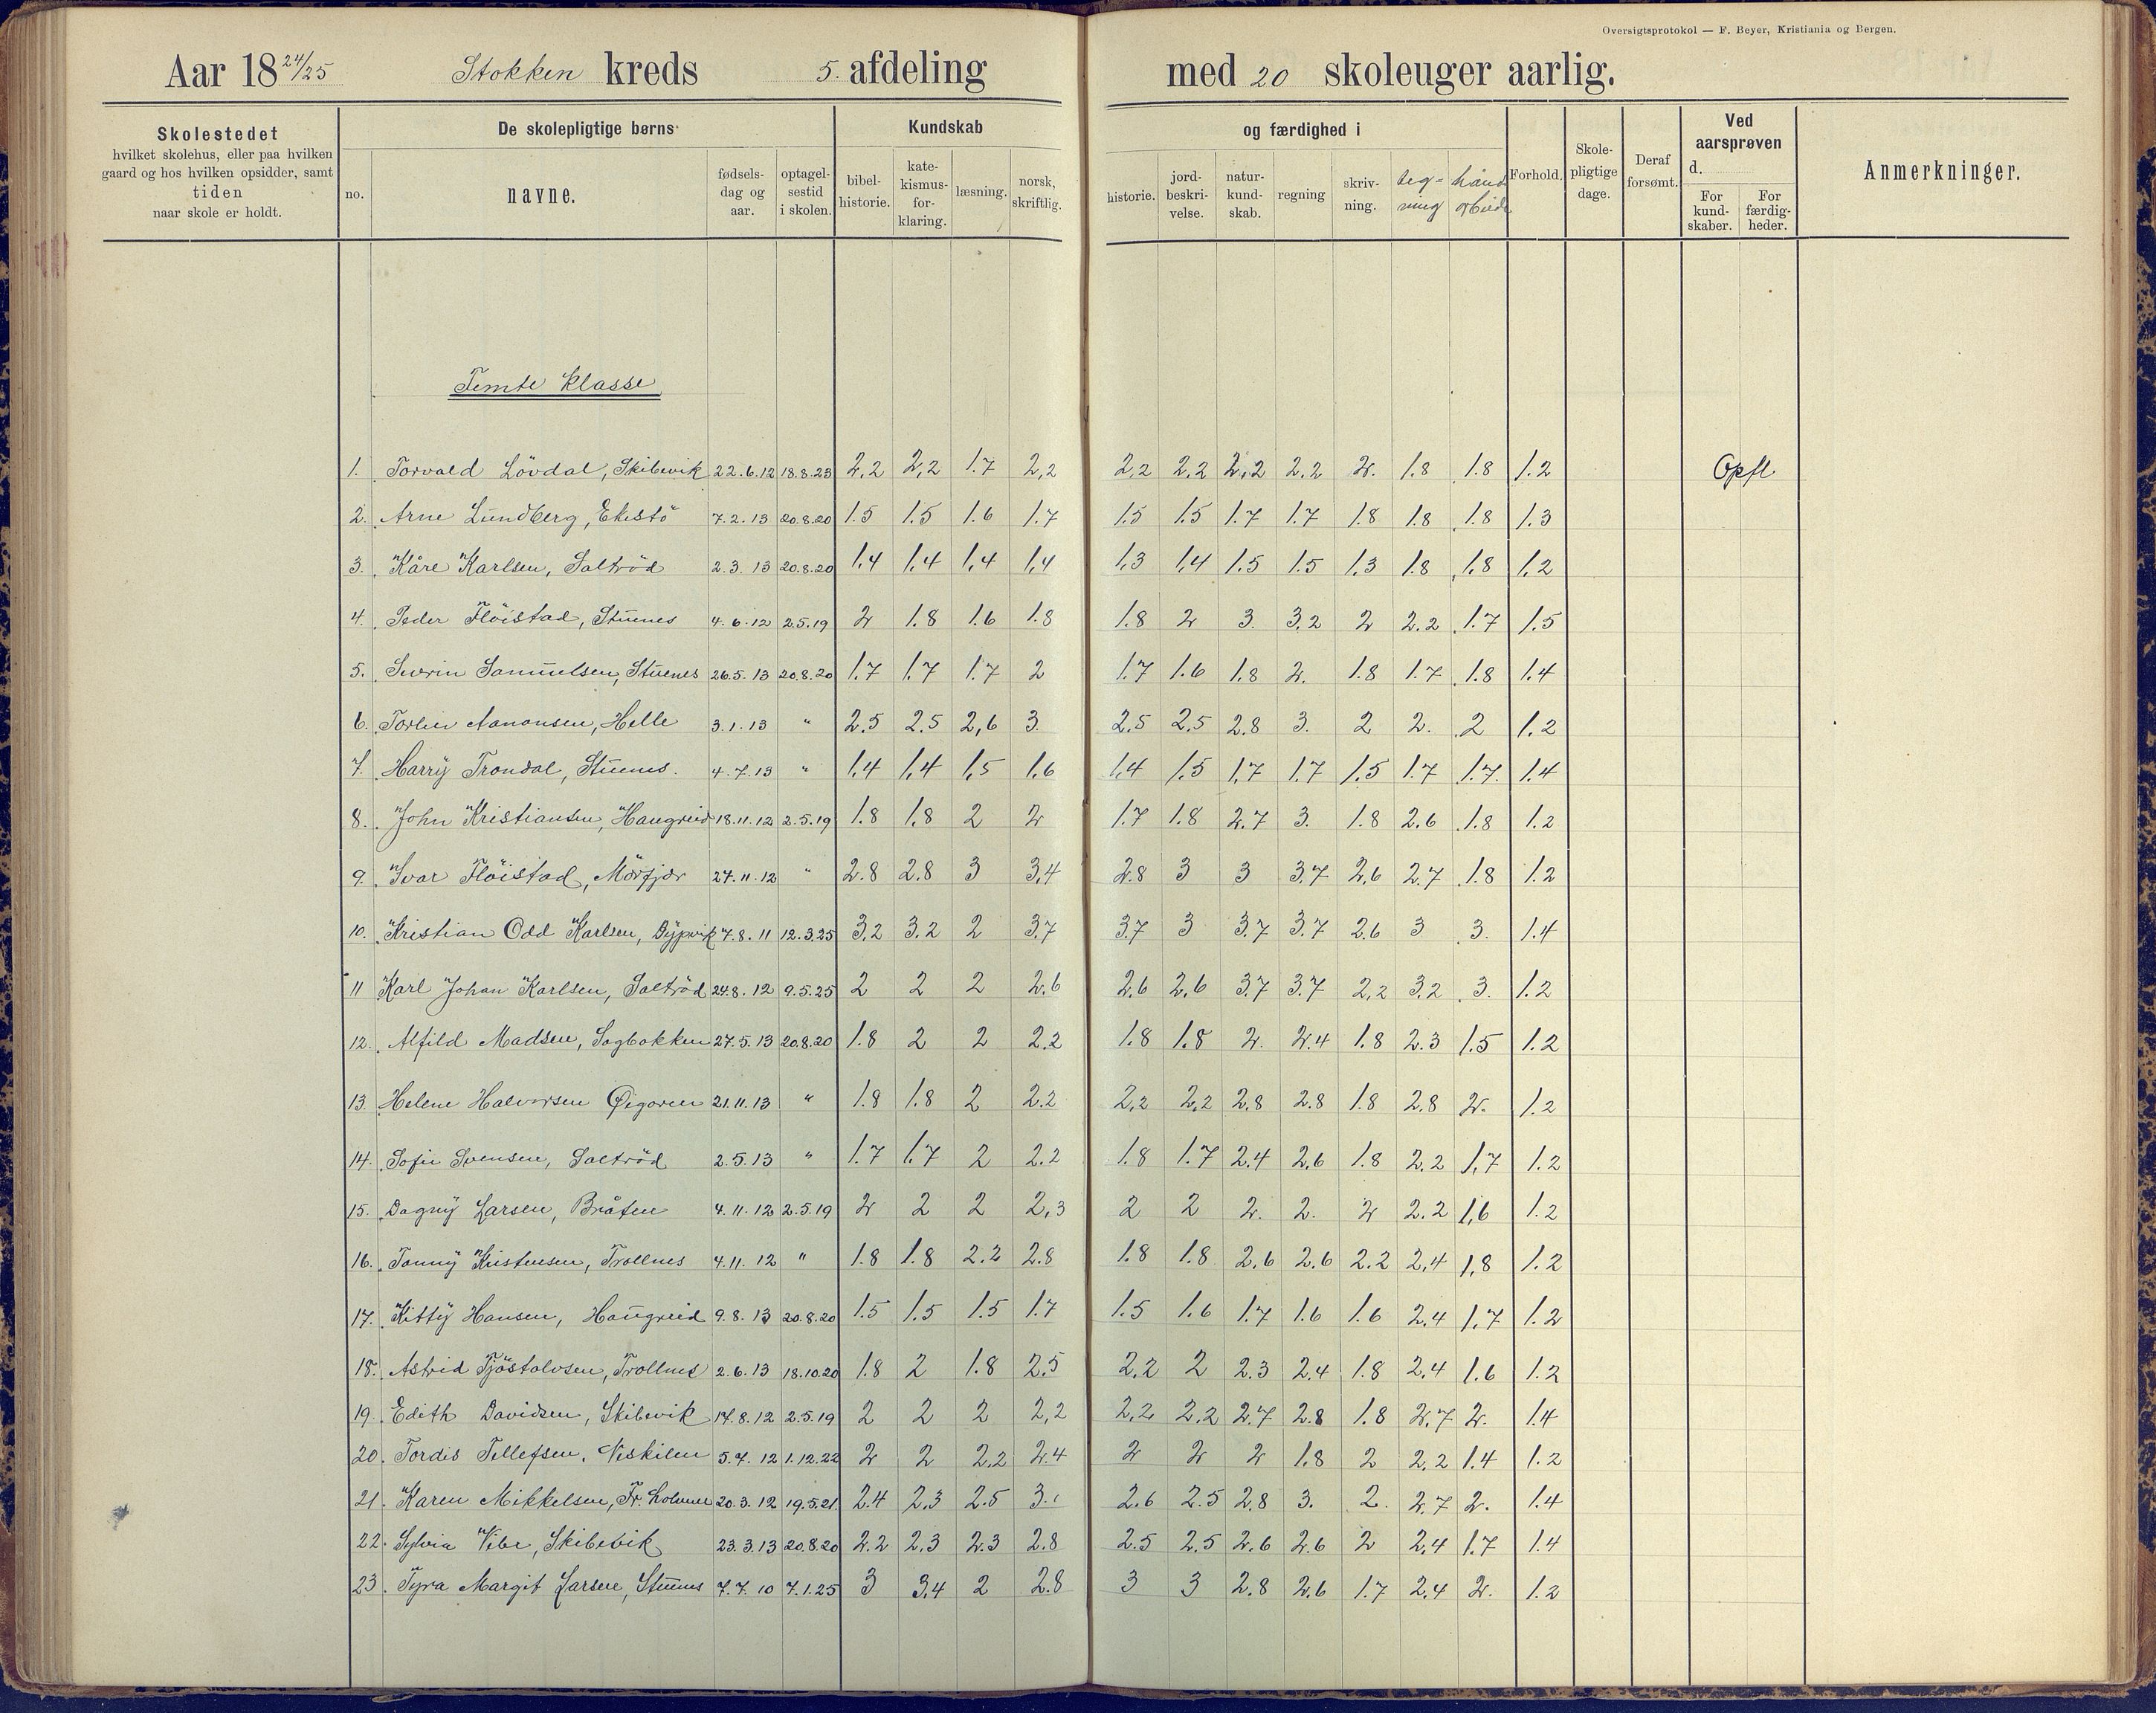 Oversigtsprotokol — F. Beyer, Kristiania og Bergen.
Aar 18 24/25 Stokken kreds 5. afdeling med 20 skoleuger aarlig.
Skolestedet
hvilket skolehus, eller paa hvilken
gaard og hos hvilken opsidder, samt
tiden
naar skole er holdt.
De skolepligtige børns
no. navne. fødsels-dag og aar. optagel-sestid i skolen.
Kundskab og færdighed i
bibel-historie. kate-kismus-for-klaring. læsning. norsk, skriftlig. historie. jord-beskri-velse. natur-kund-skab. regning skriv-ning. teg-ning hånd arbeide
Forhold. Skole-pligtige dage. Deraf forsømt.
Ved aarsprøven d.
For kund-skaber. For færdig-heder.
Anmerkninger.
Femte klasse
1. Torvald Lövdal, Skibevik 22.6.12 18.8.23 2,2 2,2 1.7 2,2 2,2 2,2 2,2 2,2 2. 1.8 1.8 1.2 Opfl
2. Arne Lundberg, Ekestö 7.2.13 20.8.20 1.5 1.5 1.6 1.7 1.5 1.5 1.7 1.7 1.8 1.8 1.8 1.3
3. Kåre Karlsen, Saltröd 2.3.13 20.8.20 1,4 1,4 1,4 1,4 1,3 1,4 1.5 1.5 1.3 1.8 1,8 1,2
4. Peder Flöistad, Stuenes 4.6.12 2.5.19 2 1.8 1.6 1.8 1.8 2 3. 3,2 2 2.2 1.7 1.5
5. Severin Samuelsen, Stuenes 26.5.13 20.8.20 1.7 1.7 1.7 2 1.7 1.6 1.8 2. 1.8 1.7 1.8 1.4
6. Torleiv Aanonsen, Helle 3.1.13 " 2.5 2.5 2,6 3. 2.5 2.5 2.8 3. 2 2. 2 1.2
7. Harry Trondal, Stuenes. 4.7.13 " 1,4 1,4 1,5 1,6 1,4 1.5 1,7 1.7 1.5 1.7 1.7. 1.4
8. John Kristiansen, Haugreid 18.11.12 2.5.19 1.8 1.8 2 2 1.7 1.8 2.7 3. 1.8 2.6 1.8 1.2
9. Ivar Flöistad, Mörfjær 27.11.12 " 2.8 2.8 3 3,4 2.8 3 3 3.7 2,6 2.7 1.8 1.2
10. Kristian Odd Karlsen, Dypvik 7.8.11 12.3.25 3,2 3.2 2 3,7 3.7 3 3.7 3.7 2.6 3 3. 1.4
11 Karl Johan Karlsen, Saltröd 24.8.12 9.5.25 2 2 2 2,6 2,6 2,6 3.7 3.7 2,2 3,2 3. 1.2
12. Alfild Madsen, Sagbakken 27.5.13 20.8.20 1.8 2 2 2.2 1.8 1.8 2. 2.4 1.8 2.3 1.5 1.2
13. Helene Halvorsen Øigaren 21.11.13 " 1.8 1.8 2 2.2 2,2 2,2 2,8 2.8 1.8 2.8 2. 1.2
14. Sofie Svensen, Saltröd 2.5.13 " 1.7 1.7 2 2.2 1.8 1.7 2.4 2,6 1.8 2.2 1,7 1.2
15. Dagny Larsen, Bråten 4.11.12 2.5.19 2 2 2 2,3 2 2 2. 2. 2 2.2 1,6 1.2
16. Tonny Kristensen, Trollnes 4.11.12 " 1.8 1.8 2.2 2.8 1.8 1.8 2.6 2.6 2.2 2,4 1,8 1.2
17. Kitty Hansen, Haugreid 9.8.13 20.8.20 1.5 1.5 1.5 1.7 1.5 1.6 1.7 1.6 1.6 2.4 1,7 1.2
18. Astrid Tjöstolvsen, Trollnes 2.6.13 18.10.20 1.8 2 1.8 2.5 2.2 2 2.3 2.4 1.8 2,4 1.6 1.2
19. Edith Davidsen, Skibevik 14.8.12 2.5.19 2 2 2 2,2 2,2 2.2 2.7 2.8 1.8 2,7 2. 1.4
20. Tordis Tellefsen. Neskilen 5.7.12 1.12.22 2 2 2,2 2.4 2 2 2 1.8 2 2,2 1.4 1.2
21. Karen Mikkelsen, Fr. holmen 20.3.12 19.5.21 2.4 2,3 2.5 3. 2.6 2.5 2,8 3. 2. 2.7 2. 1.4
22. Sylvia Vibe, Skibevik 23.3.13 20.8.20 2.2 2,3 2.3 2.8 2.5 2.5 2.6 2.6 2 2,4 1.7 1.4
23. Tyra Margit Larsen, Stuenes 7.7.10 7.1.25 3 3,4 2 2.8 3 3 2.8 2.6 1.7 2.4 2. 1.2